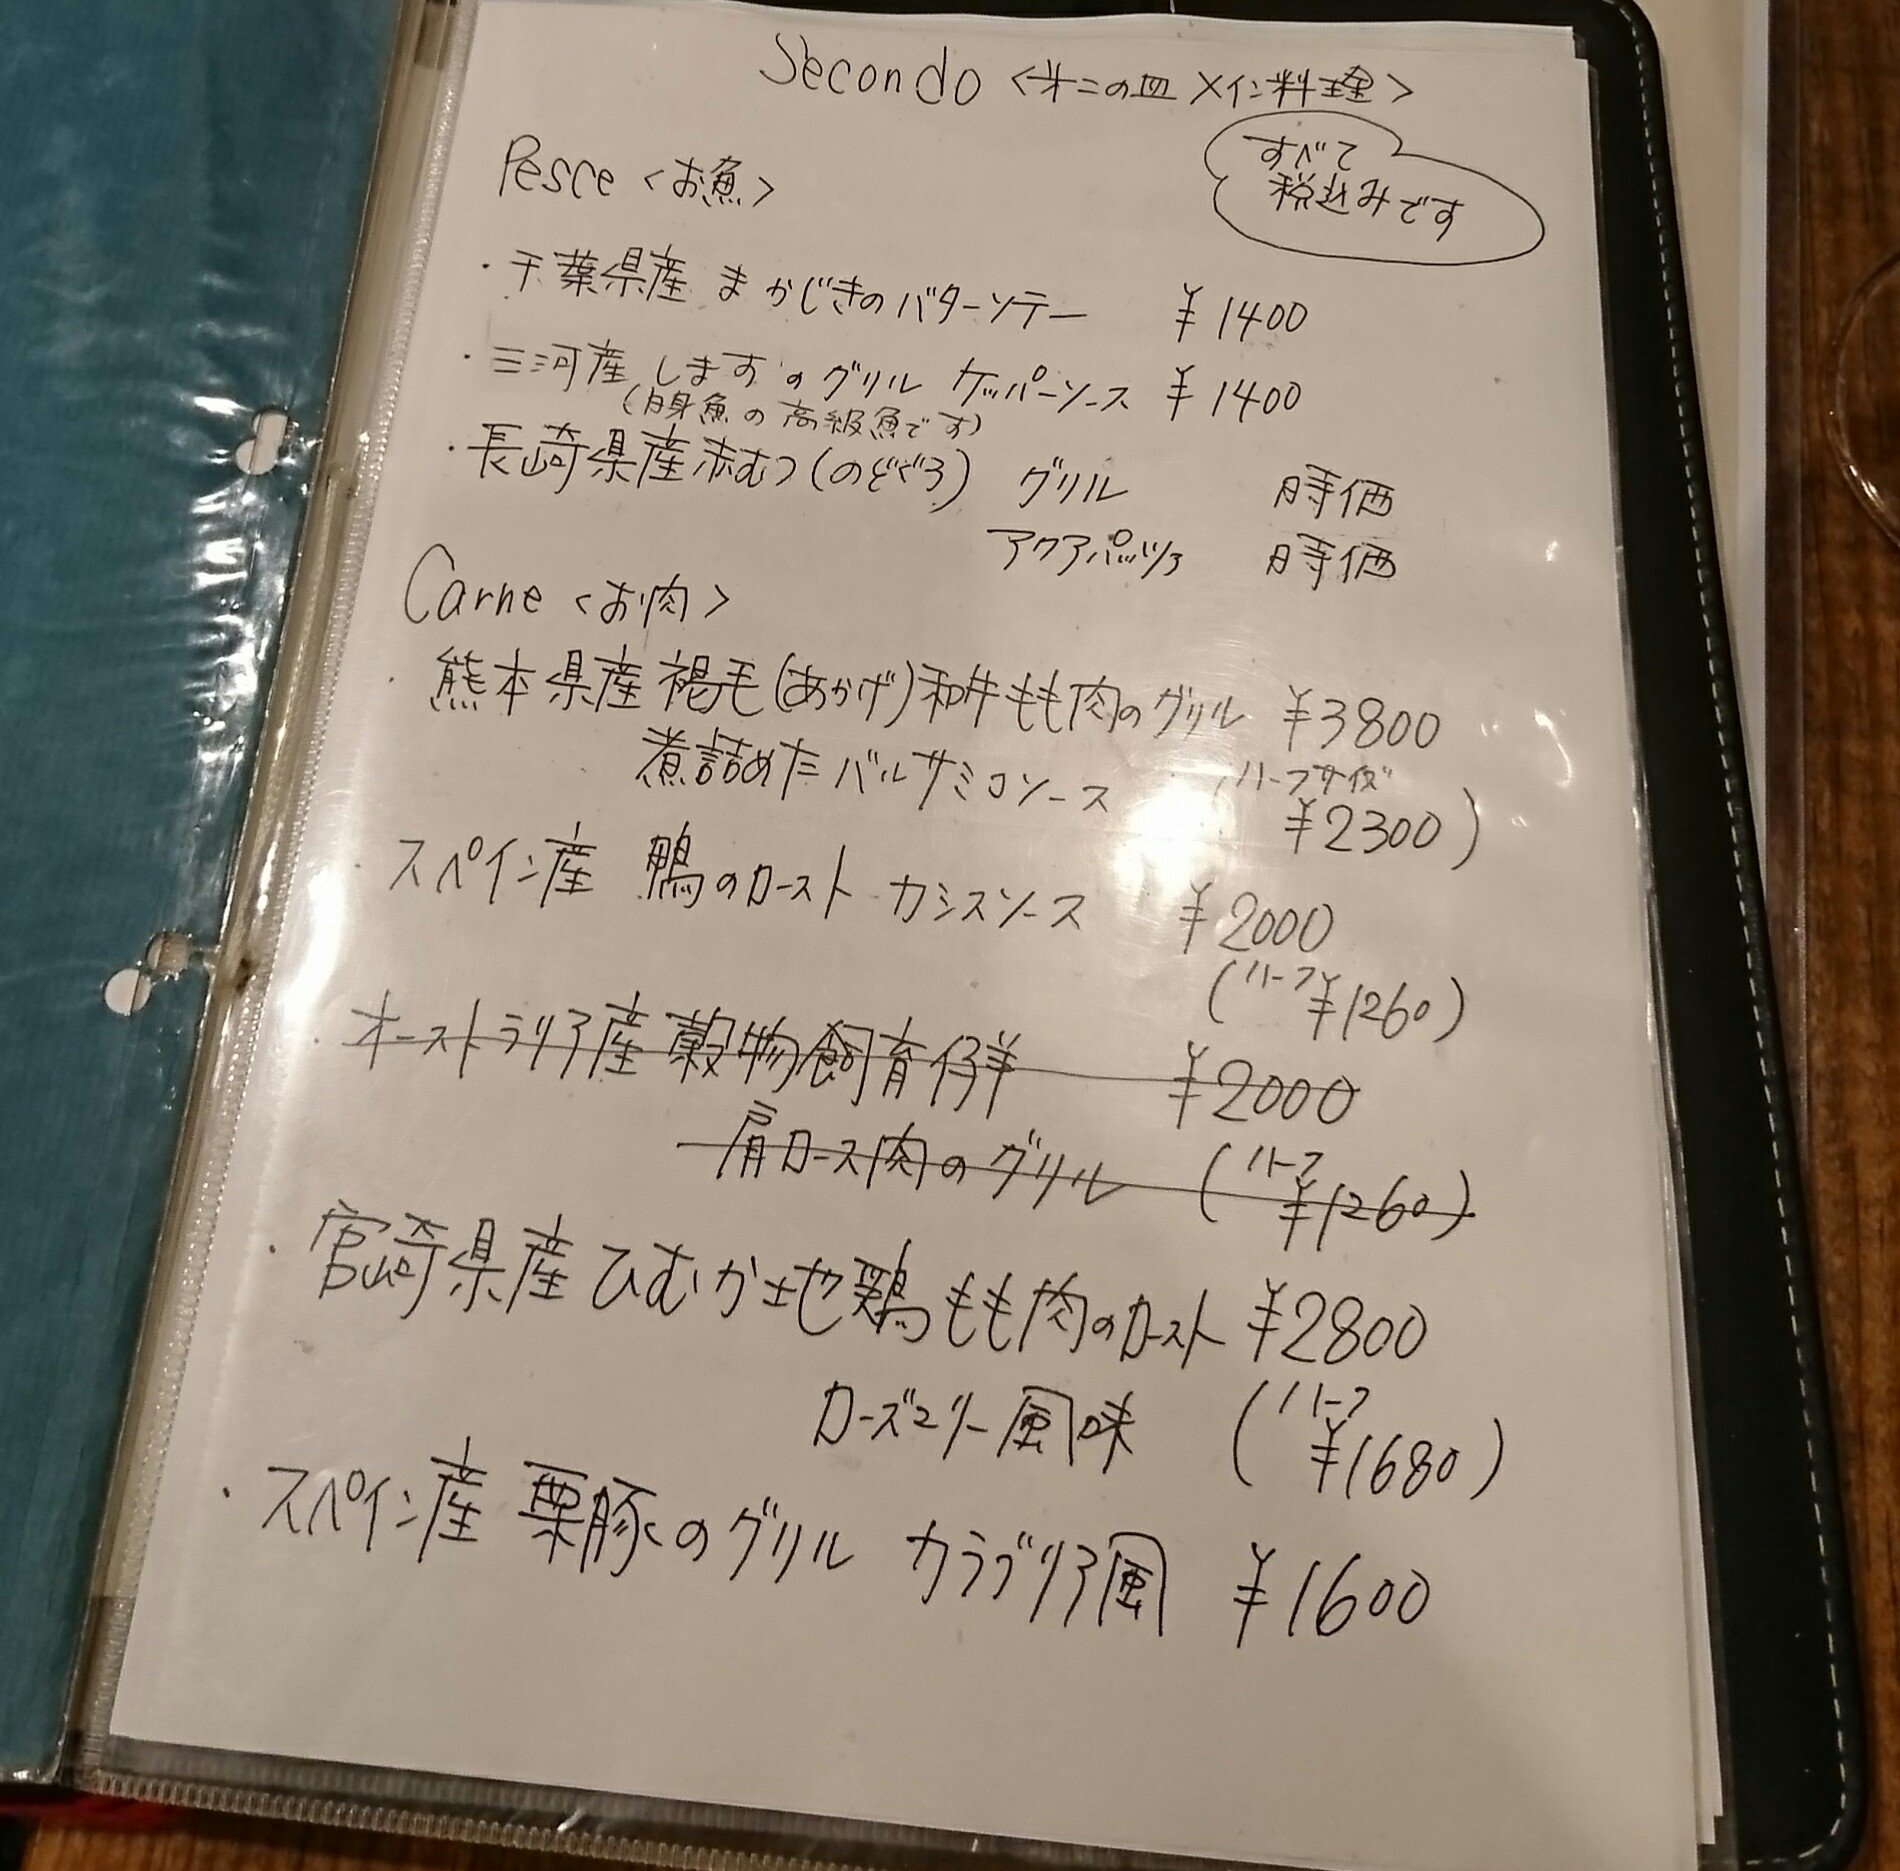 Secondo <オ二の皿 メイン料理>
すべて
税込みです
Pesce <お魚>
・千葉県産 まかじきのバターソテー ¥1400
・三河産 しますのグリル ケッパーソース ¥1400
(白身魚の高級魚です)
・長崎県産赤むつ(のどぐろ) グリル 時価
アクアパッツァ 時価
Carne <お肉>
・熊本県産褐毛(あかげ)和牛もも肉のグリル ¥3800
煮詰めたバルサミコソース (ハーフサイズ
¥2300)
・スペイン産 鴨のロースト カシスソース ¥2000
(ハーフ ¥1260)
・オーストラリア産穀物飼育仔羊 ¥2000
肩ロース肉のグリル (ハーフ
¥1260)
・宮崎県産ひむか地鶏もも肉のロースト ¥2800
ローズマリー風味 (ハーフ
¥1680)
・スペイン産 栗豚のグリル カラブリア風 ¥1600